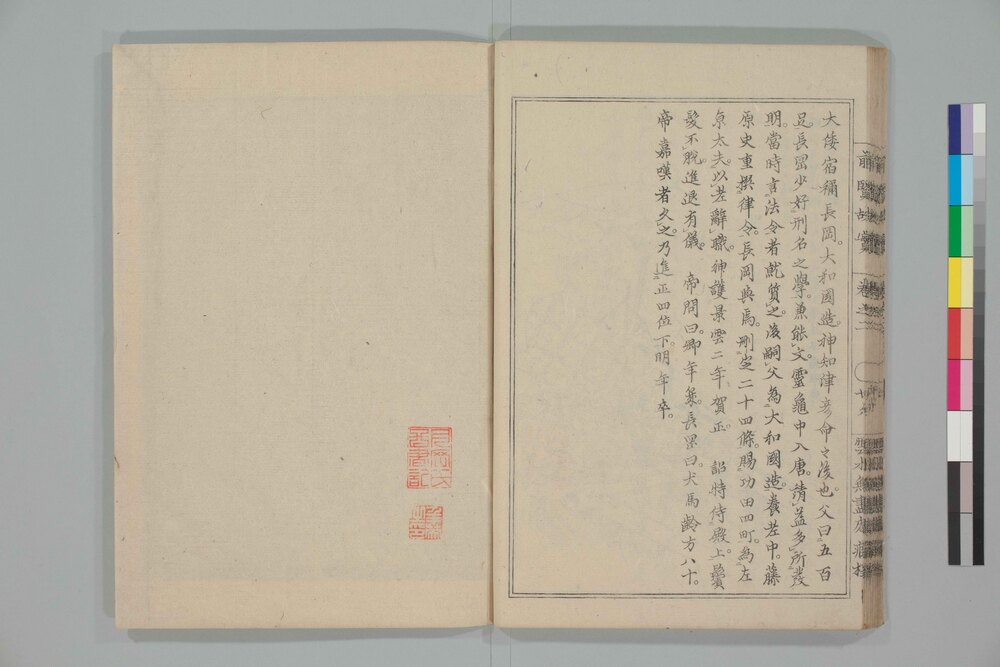 大倭宿禰長岡。大和國造。神知津彦命之後也。父曰五百
足。長岡少好刑名之學。兼能文。靈龜中入唐。請益多所發
明。當時言法令者就質之。後嗣父為大和國造。養老中。藤
原史重撰律令。長岡與焉。刪定二十四條。賜功田四町。為左
京大夫。以老辭職。神護景雲二年賀正。詔特侍殿上。鬢
髮不脫。進退有儀。帝問曰。卿年幾。長岡曰。犬馬齡方八十。
帝嘉嘆者久之。乃進正四位下。明年卒。
前賢故實
卷之二